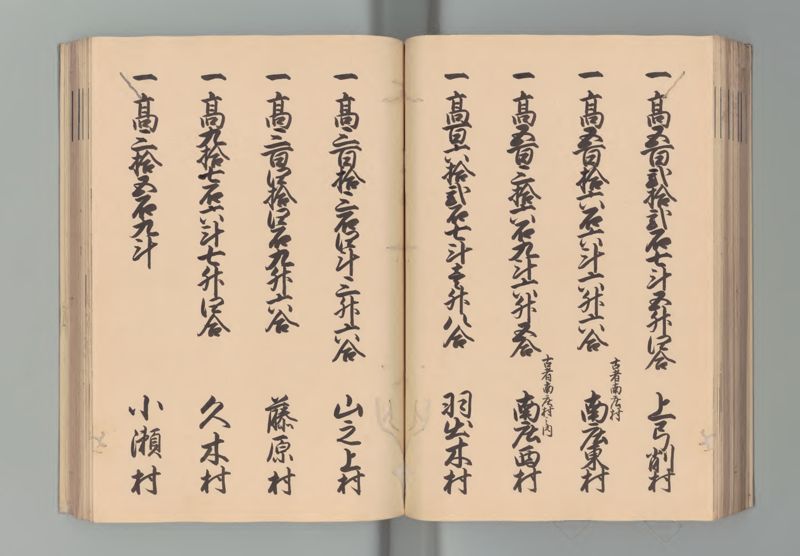 一高五百弐拾弐石七斗五升四合 上弓削村
一高五百拾六石六斗六升六合 南庄東村
古者南庄村
一高五百三拾六石九斗六升五合 南庄西村
古者南庄村之内
一高百六拾弐石七斗壱升八合 羽出木村
一高三百拾三石四斗三升六合 山之上村
一高三百四拾四石九升六合 藤原村
一高九拾七石六斗七升四合 久木村
一高三拾五石九斗 小瀬村